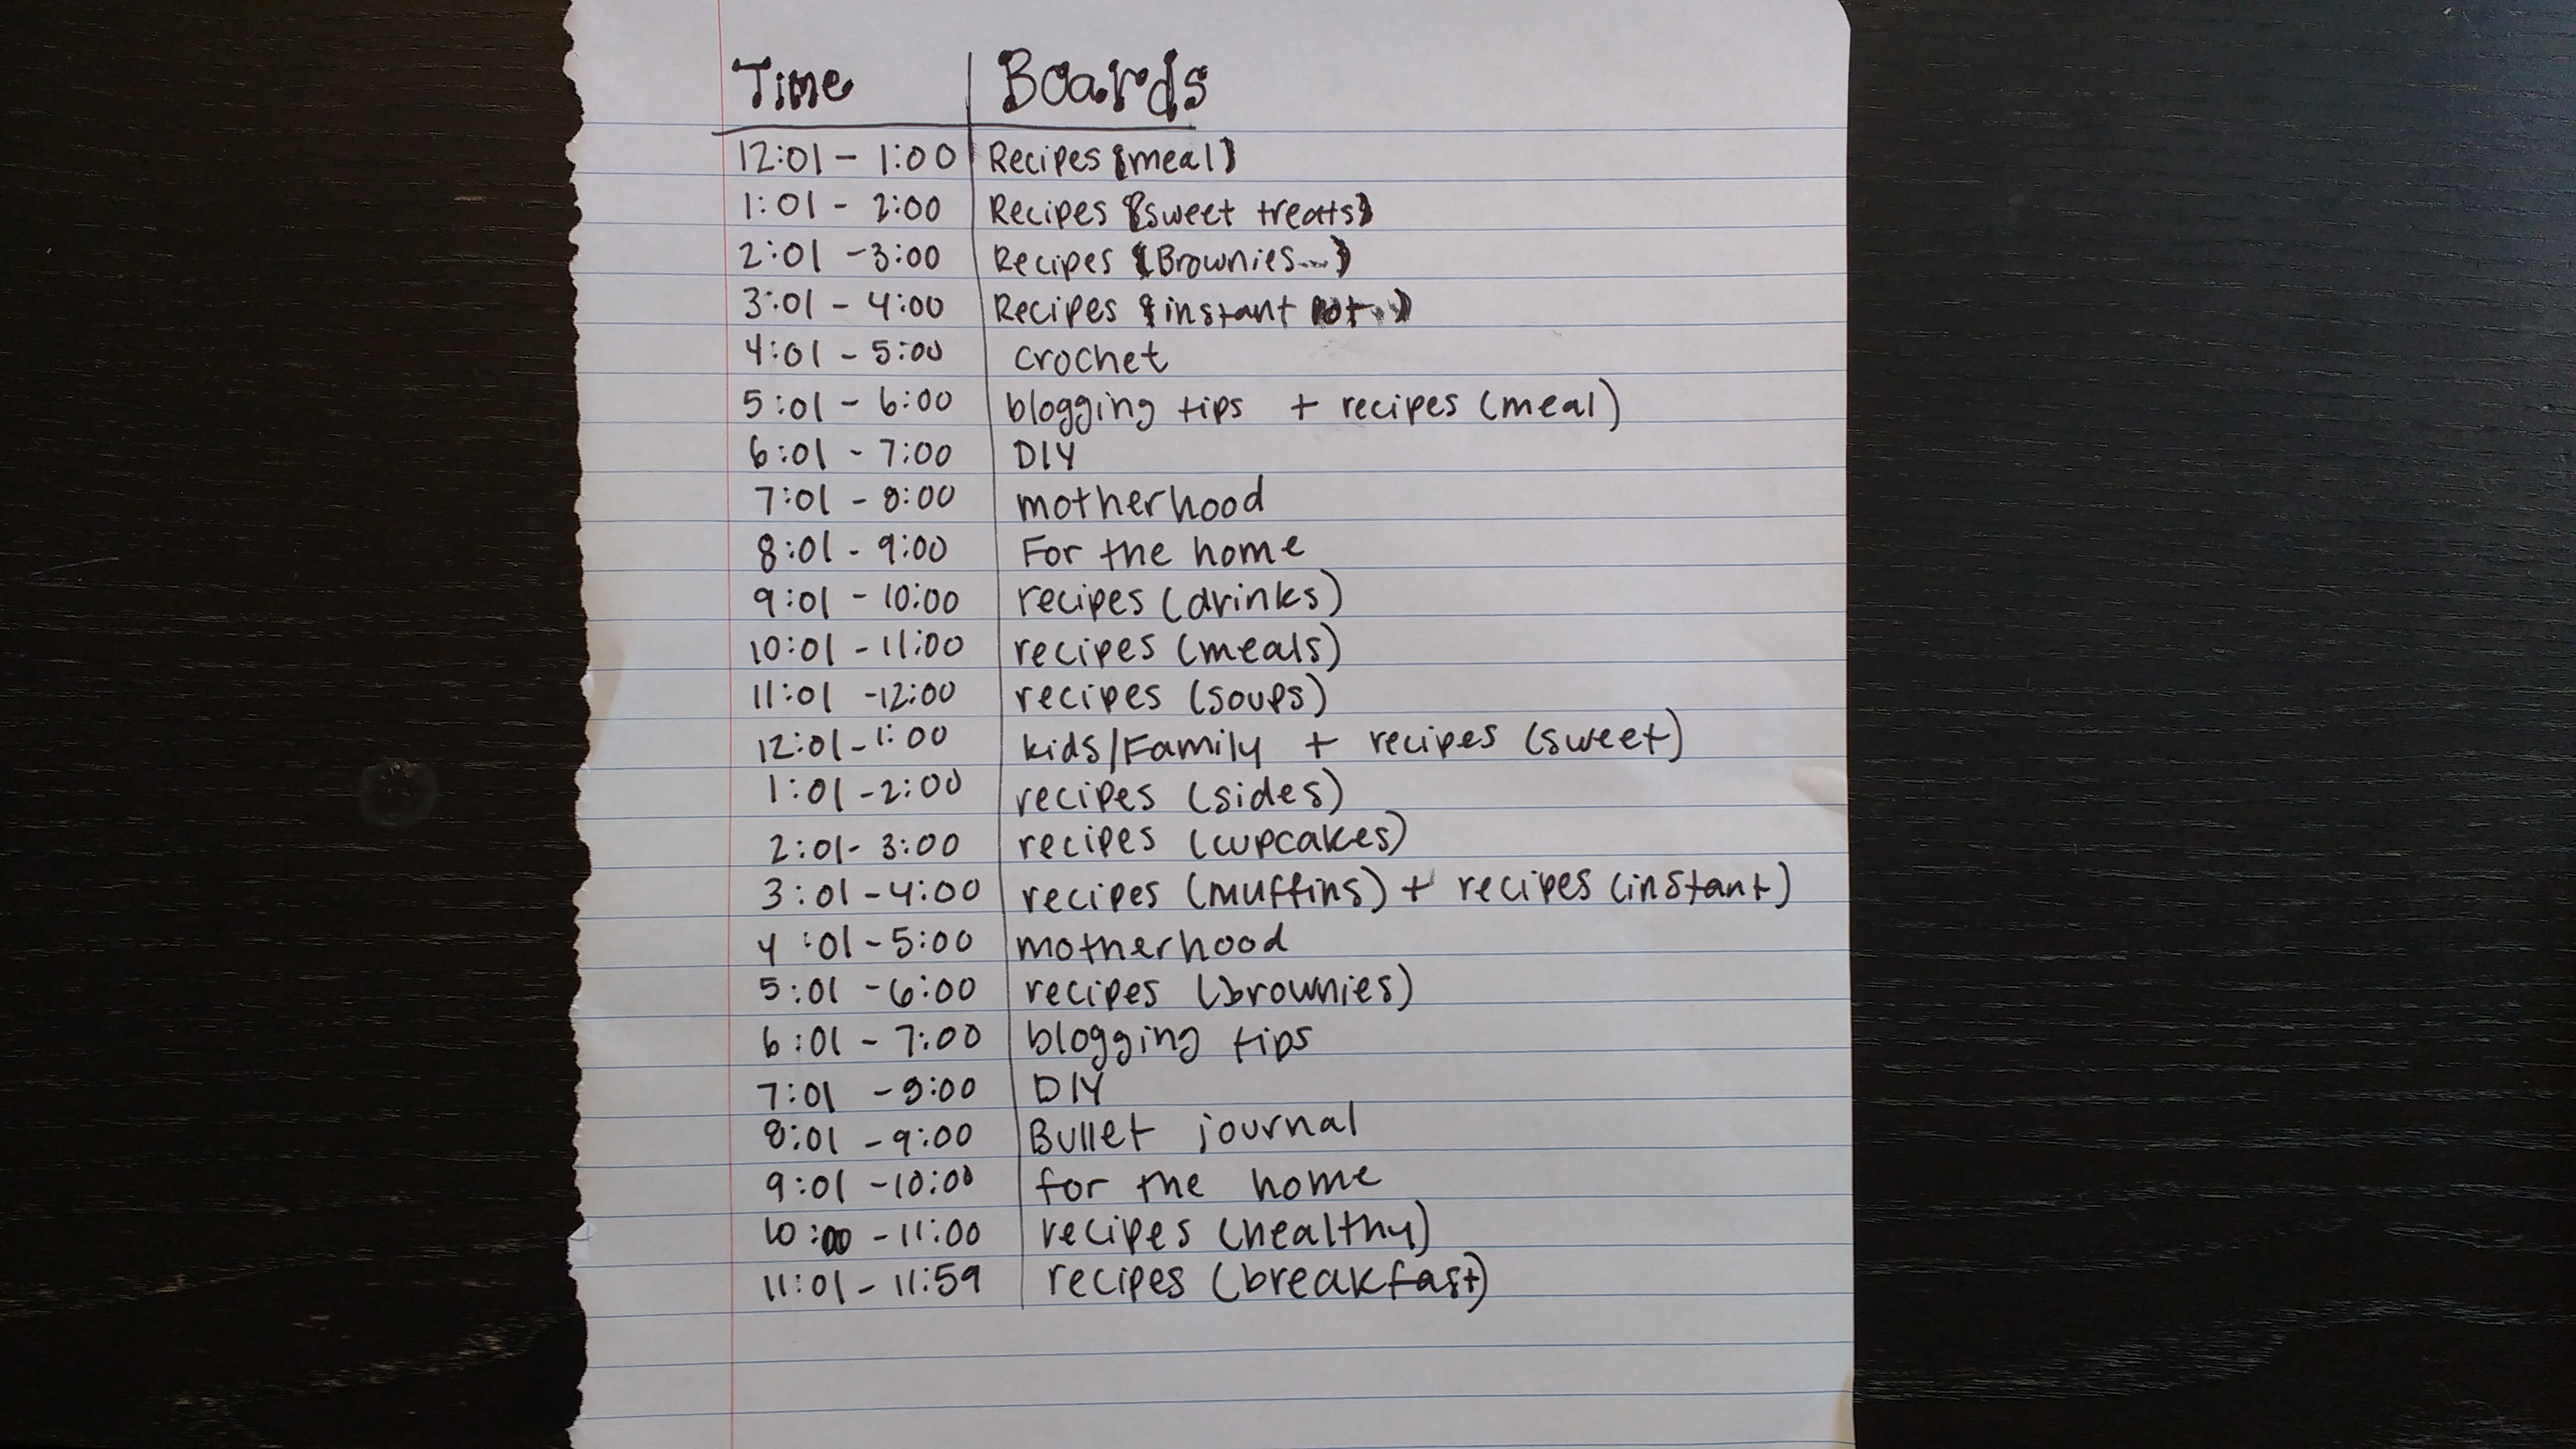 Time Boards
12:01 - 1:00 Recipes (meal)
1:01 - 2:00 Recipes (sweet treats)
2:01 - 3:00 Recipes (Brownies...)
3:01 - 4:00 Recipes (instant pot..)
4:01 - 5:00 crochet
5:01 - 6:00 blogging tips + recipes (meal)
6:01 - 7:00 DIY
7:01 - 8:00 motherhood
8:01 - 9:00 For the home
9:01 - 10:00 recipes (drinks)
10:01 - 11:00 recipes (meals)
11:01 - 12:00 recipes (soups)
12:01 - 1:00 kids/Family + recipes (sweet)
1:01 - 2:00 recipes (sides)
2:01 - 3:00 recipes (cupcakes)
3:01 - 4:00 recipes (muffins) + recipes (instant)
4:01 - 5:00 motherhood
5:01 - 6:00 recipes (brownies)
6:01 - 7:00 blogging tips
7:01 - 8:00 DIY
8:01 - 9:00 Bullet journal
9:01 - 10:00 for the home
10:00 - 11:00 recipes (healthy)
11:01 - 11:59 recipes (breakfast)